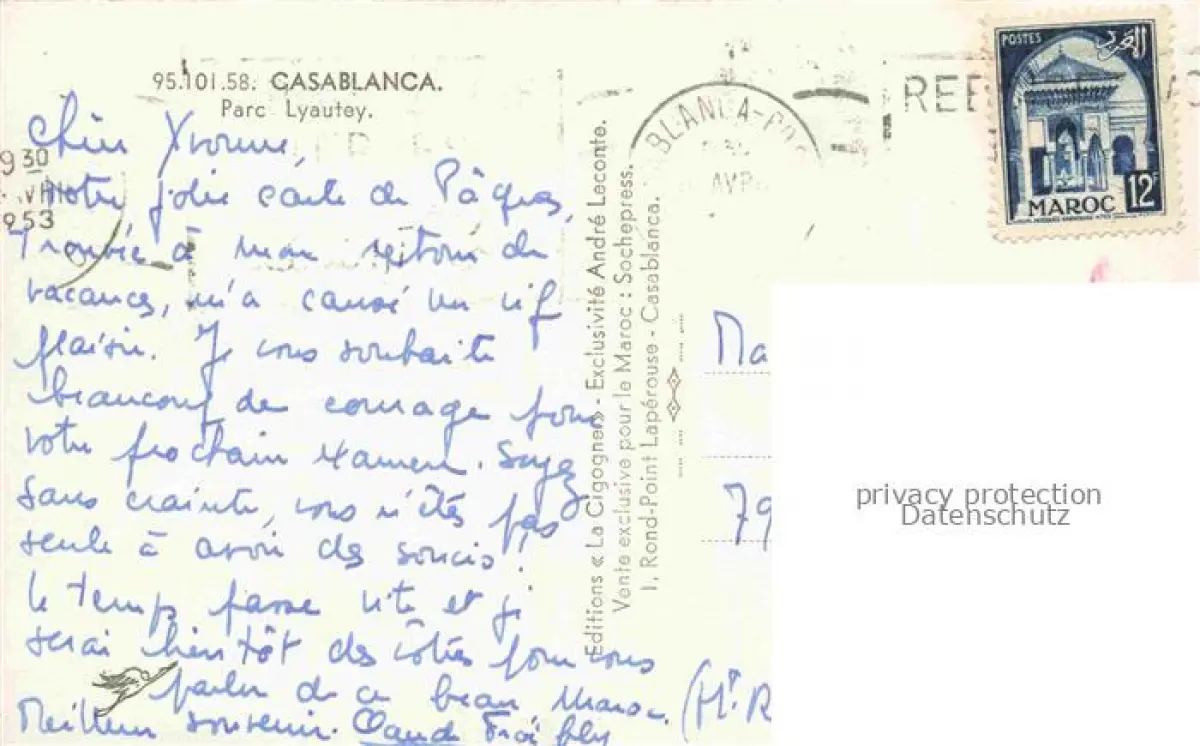 95.101.58: CASABLANCA.
Parc Lyautey.
Chère Yvonne,
Votre jolie carte de Pâques,
trouvée à mon retour de
vacances, m'a causé un vif
plaisir. Je vous souhaite
beaucoup de courage pour
votre prochain examen. Soyez
sans crainte, vous n'êtes pas
seule à avoir des soucis!
Le temps passe vite et je
serai bientôt des vôtres pour vous
parler de ce beau Maroc. (Mt R
Meilleur souvenir. Claude
930
VIII
1953
Editions « La Cigogne » - Exclusivité André Leconte.
Vente exclusive pour le Maroc : Sochepress.
1, Rond-Point Lapérouse - Casablanca.
BLANCA-PO
AVR
REF
POSTES
المغرب
MAROC 12F
Ma
79
privacy protection
Datenschutz